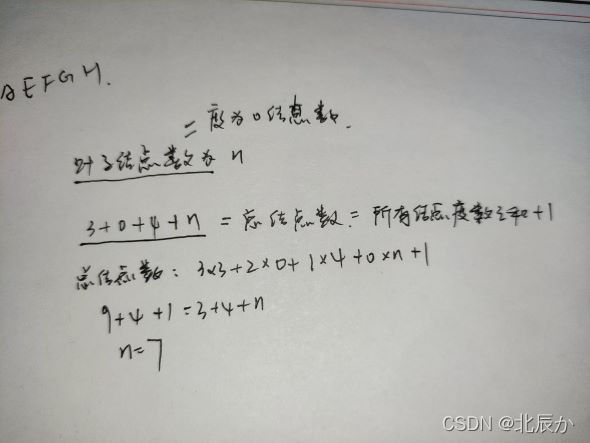 DEFGH.
= 度为0结点数.
叶子结点数为 n
3+0+4+n = 总结点数 = 所有结点度数之和+1
总结点数: 3×3+2×0+1×4+0×n+1
9+4+1=3+4+n
n=7
CSDN @北辰か